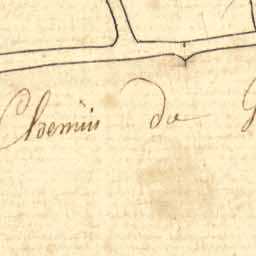 Chemin du